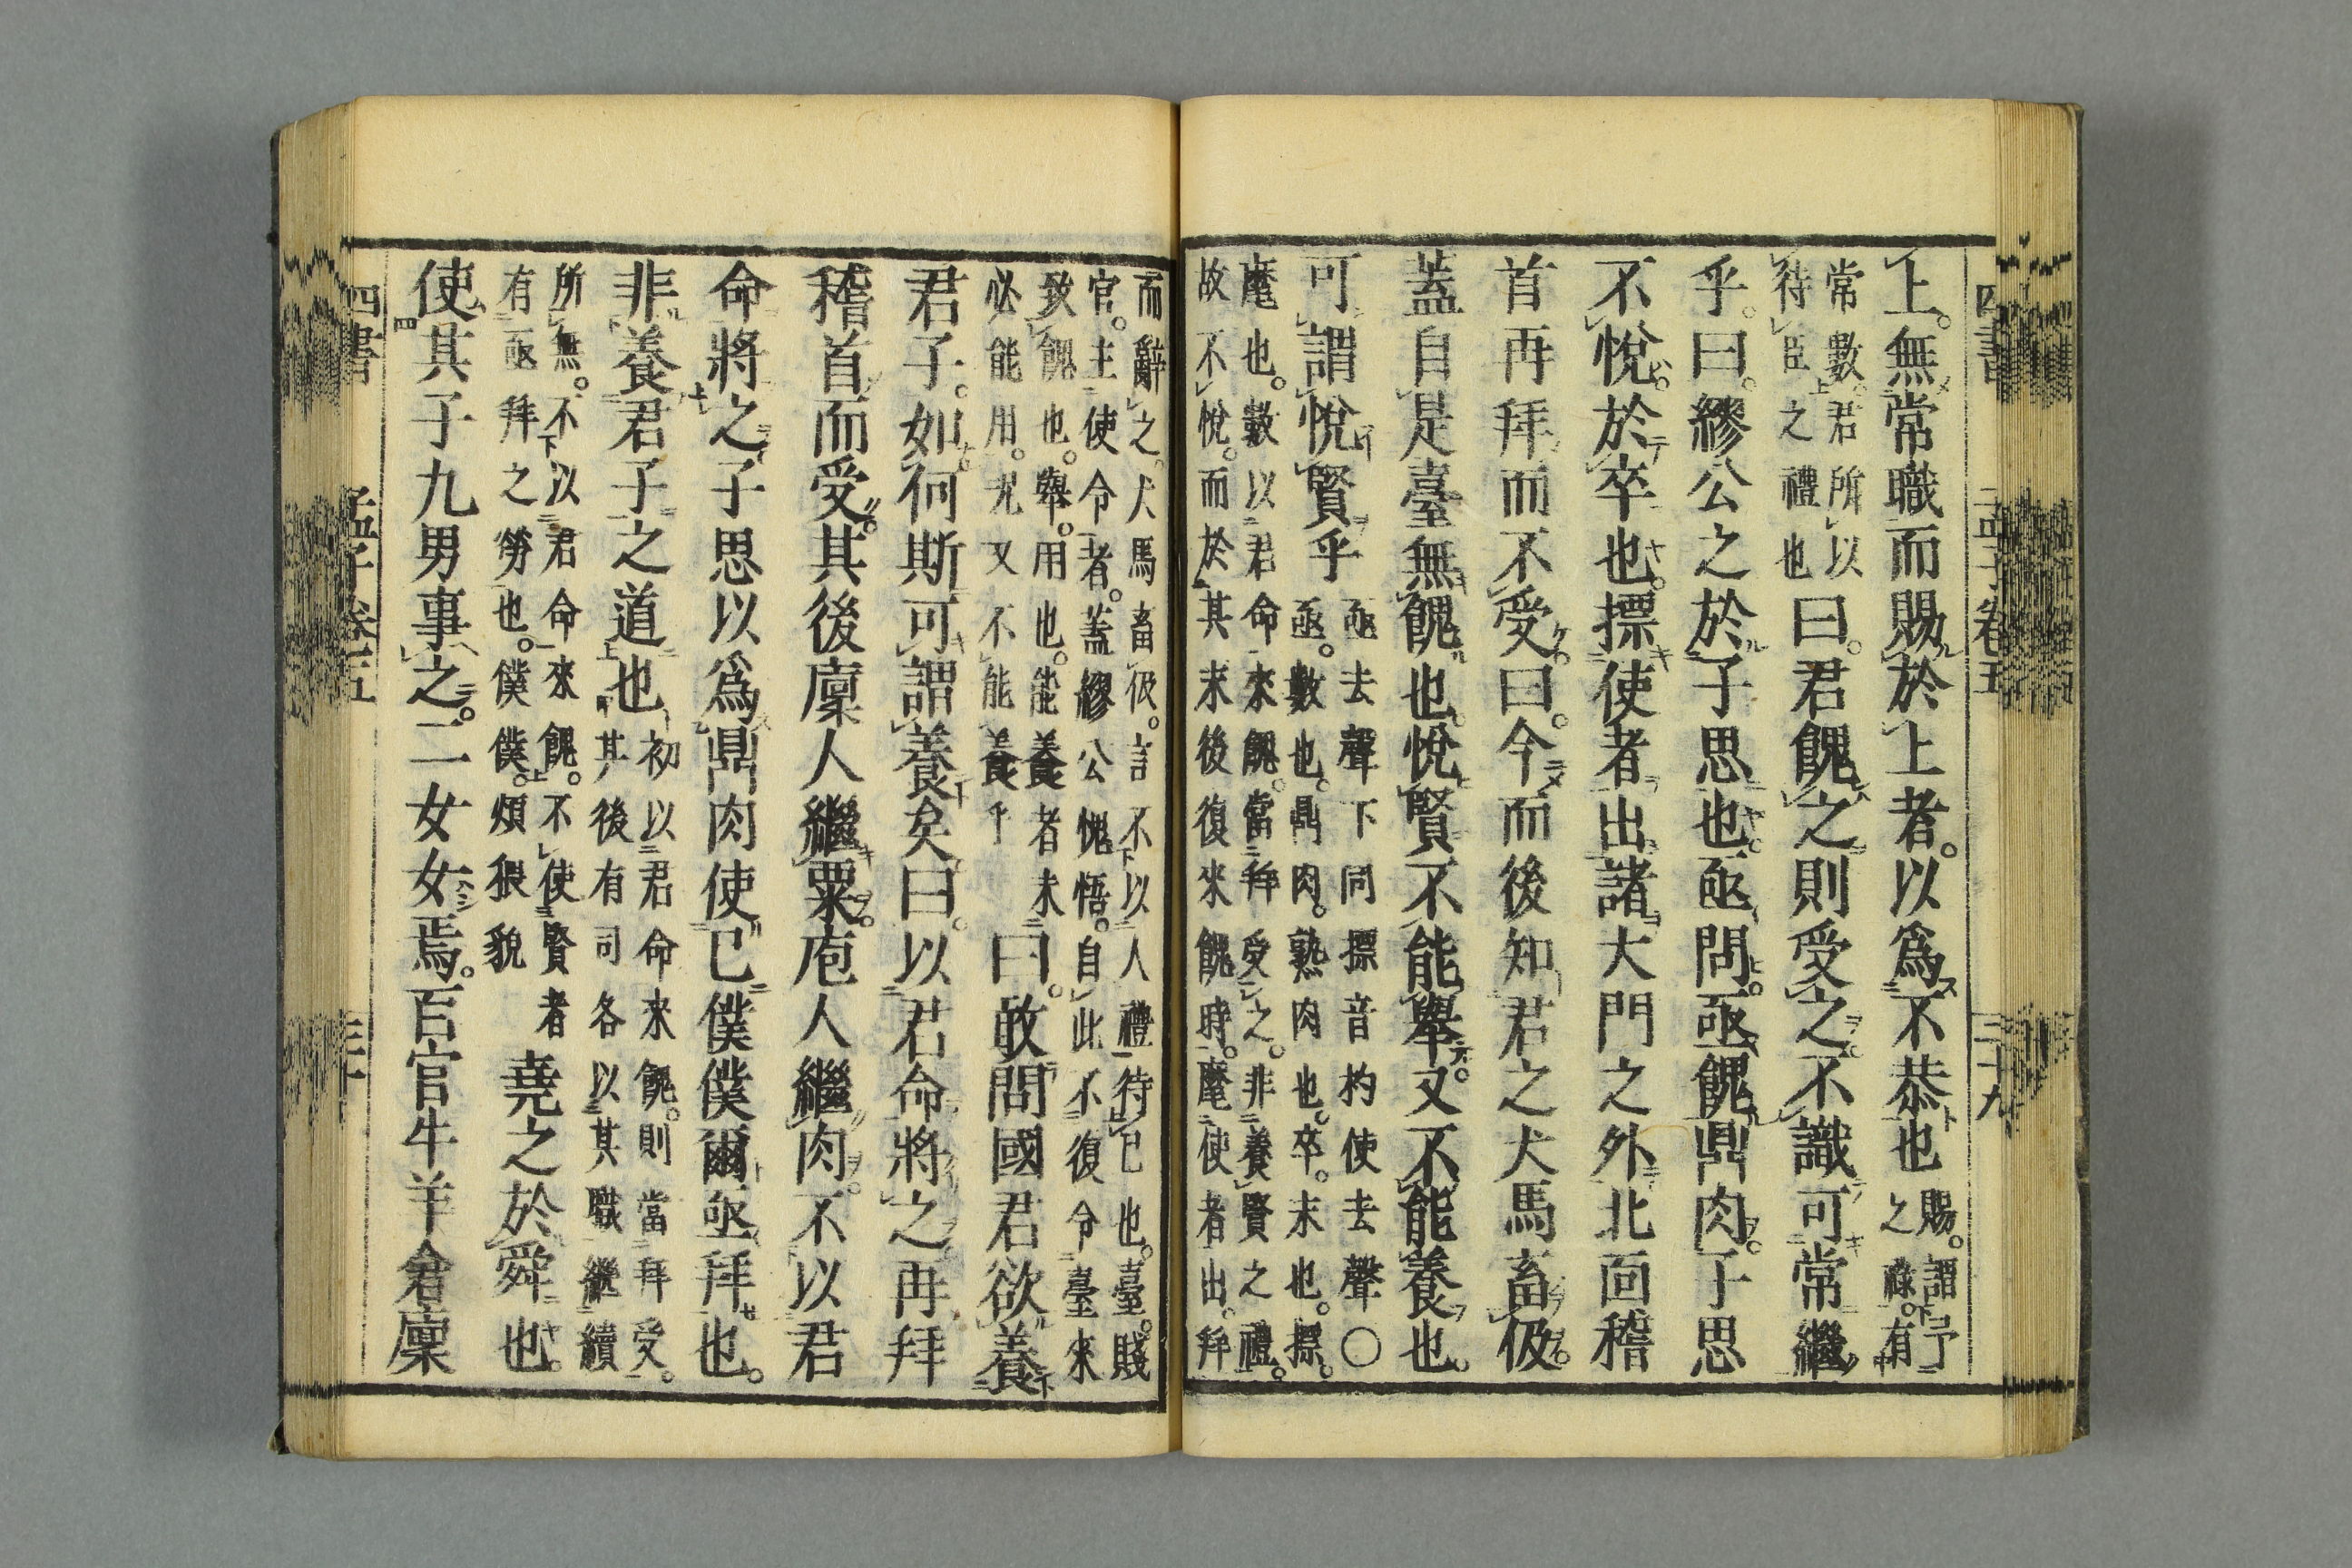 上。無常職而賜於上者。以爲不恭也 賜。謂予
之祿。有
常數。君所以
待臣之禮也 曰。君餽之則受之。不識可常繼
乎。曰。繆公之於子思也。亟問。亟餽鼎肉。子思
不悅。於卒也。摽使者出諸大門之外。北面稽
首再拜而不受。曰。今而後知君之犬馬畜伋。
蓋自是臺無餽也。悅賢不能舉。又不能養也。
可謂悅賢乎 亟去聲下同摽音杓使去聲○
亟。數也。鼎肉。熟肉也。卒。末也。摽。
麾也。數以君命來餽。當拜受之。非養賢之禮。
故不悅。而於其末後復來餽時。麾使者出。拜
而辭之。犬馬畜伋。言不以人禮待己也。臺。賤
官。主使令者。蓋繆公愧悟。自此不復令臺來
致餽也。舉。用也。能養者未
必能用。況又不能養乎 曰。敢問國君欲養
君子。如何斯可謂養矣。曰。以君命將之。再拜
稽首而受。其後廩人繼粟。庖人繼肉。不以君
命將之。子思以爲鼎肉使己僕僕爾亟拜也。
非養君子之道也 初以君命來餽。則當拜受。
其後有司各以其職繼續
所無。不以君命來餽。不使賢者
有亟拜之勞也。僕僕。煩猥貌 堯之於舜也。
使其子九男事之。二女女焉。百官牛羊倉廩
四書 孟子卷五 二十九
四書 孟子卷五 三十